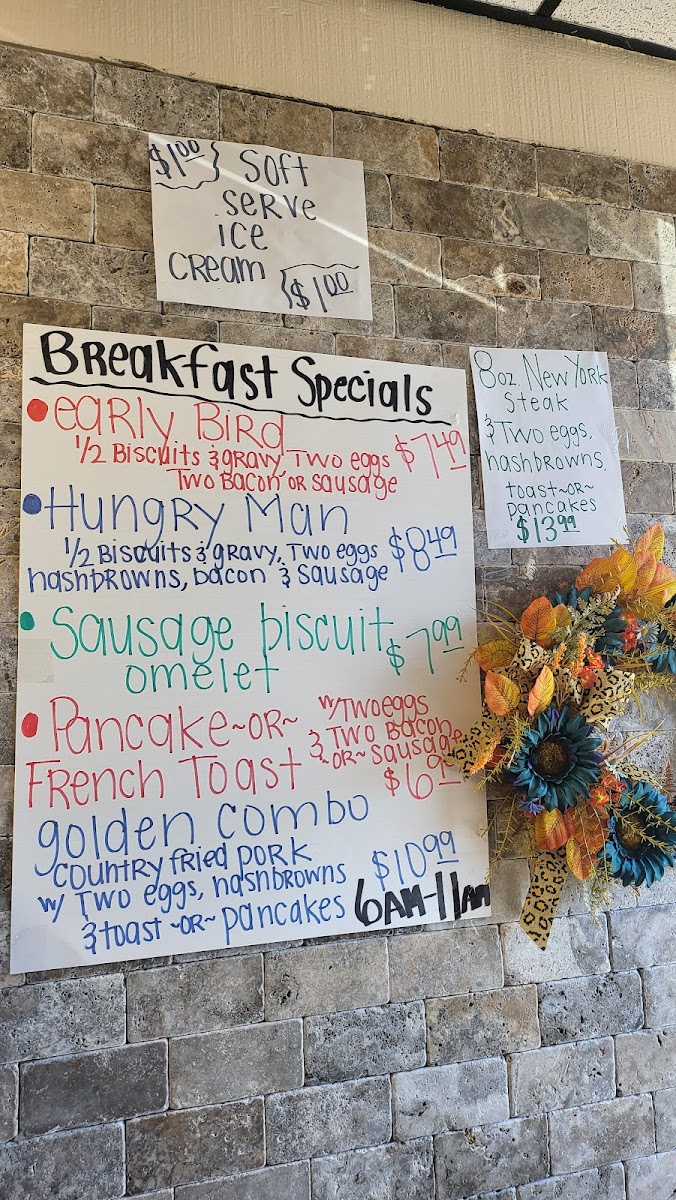 $1.00 Soft
serve
ice
cream $1.00
Breakfast Specials
early Bird
1/2 Biscuits & gravy, Two eggs $7.49
Two Bacon or sausage
Hungry Man
1/2 Biscuits & gravy, Two eggs $8.49
hashbrowns, bacon & sausage
Sausage biscuit $7.99
omelet
Pancake ~OR~ w/Two eggs
& Two Bacon
French Toast ~OR~ Sausage
golden combo
country fried pork $10.99
w/ Two eggs, hashbrowns
& toast ~OR~ pancakes 6AM-11AM
8oz. New York
Steak
& Two eggs,
hashbrowns,
toast ~OR~
pancakes
$13.99